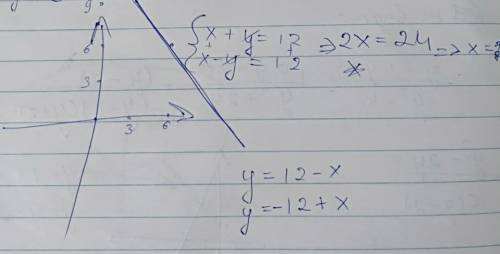 9
6
3
3 6
x + y = 12
x - y = 12
⇒ 2x = 24
⇒ x =
y = 12 - x
y = -12 + x